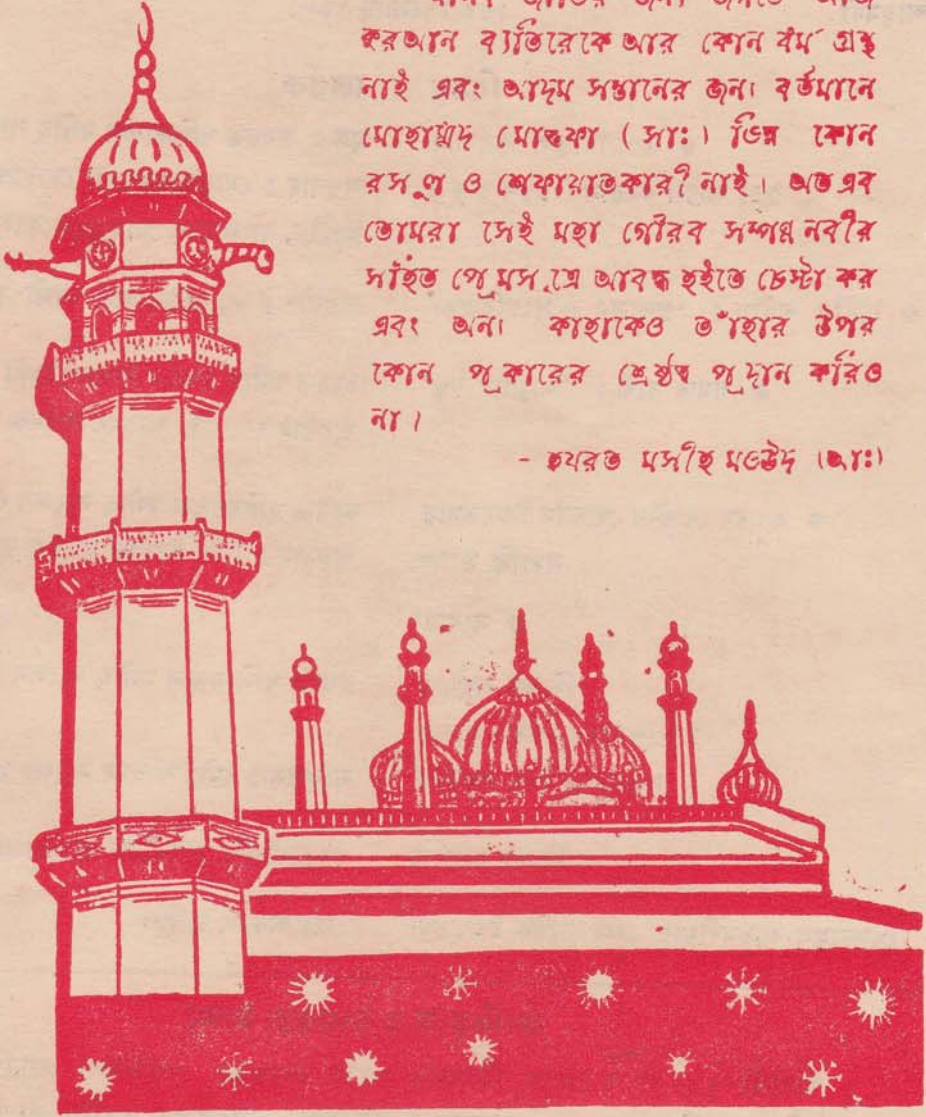 মানব জাতির জন্য জগতে আজ
কুরআন ব্যতিরেকে আর কোন ধর্ম গ্রন্থ
নাই এবং আদম সন্তানের জন্য বর্তমানে
মোহাম্মদ মোস্তফা (সাঃ) ভিন্ন কোন
রসূল ও শেফায়াতকারী নাই। অতএব
তোমরা সেই মহা গৌরব সম্পন্ন নবীর
সহিত প্রেমসূত্রে আবদ্ধ হইতে চেস্টা কর
এবং অন্য কাহাকেও তাঁহার উপর
কোন প্রকারের শ্রেষ্ঠত্ব প্রদান করিও
না।
- হযরত মসীহ মওউদ (আঃ)